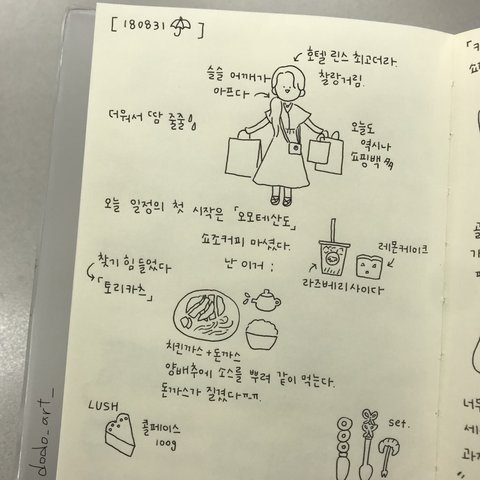 [ 180831 ]
호텔 린스 최고더라.
찰랑거림.
슬슬 어깨가
아프다
더워서 땀 줄줄
오늘도
역시나
쇼핑백
오늘 일정의 첫 시작은 「오모테산도」
쇼죠커피 마셨다.
난 이거 ;
레몬케이크
라즈베리사이다
찾기 힘들었다
「토리카츠」
치킨까스 + 돈까스
양배추에 소스를 뿌려 같이 먹는다.
돈까스가 질겼다ㅠㅠ
LUSH
콜페이스
100g
set.
dodo_art_